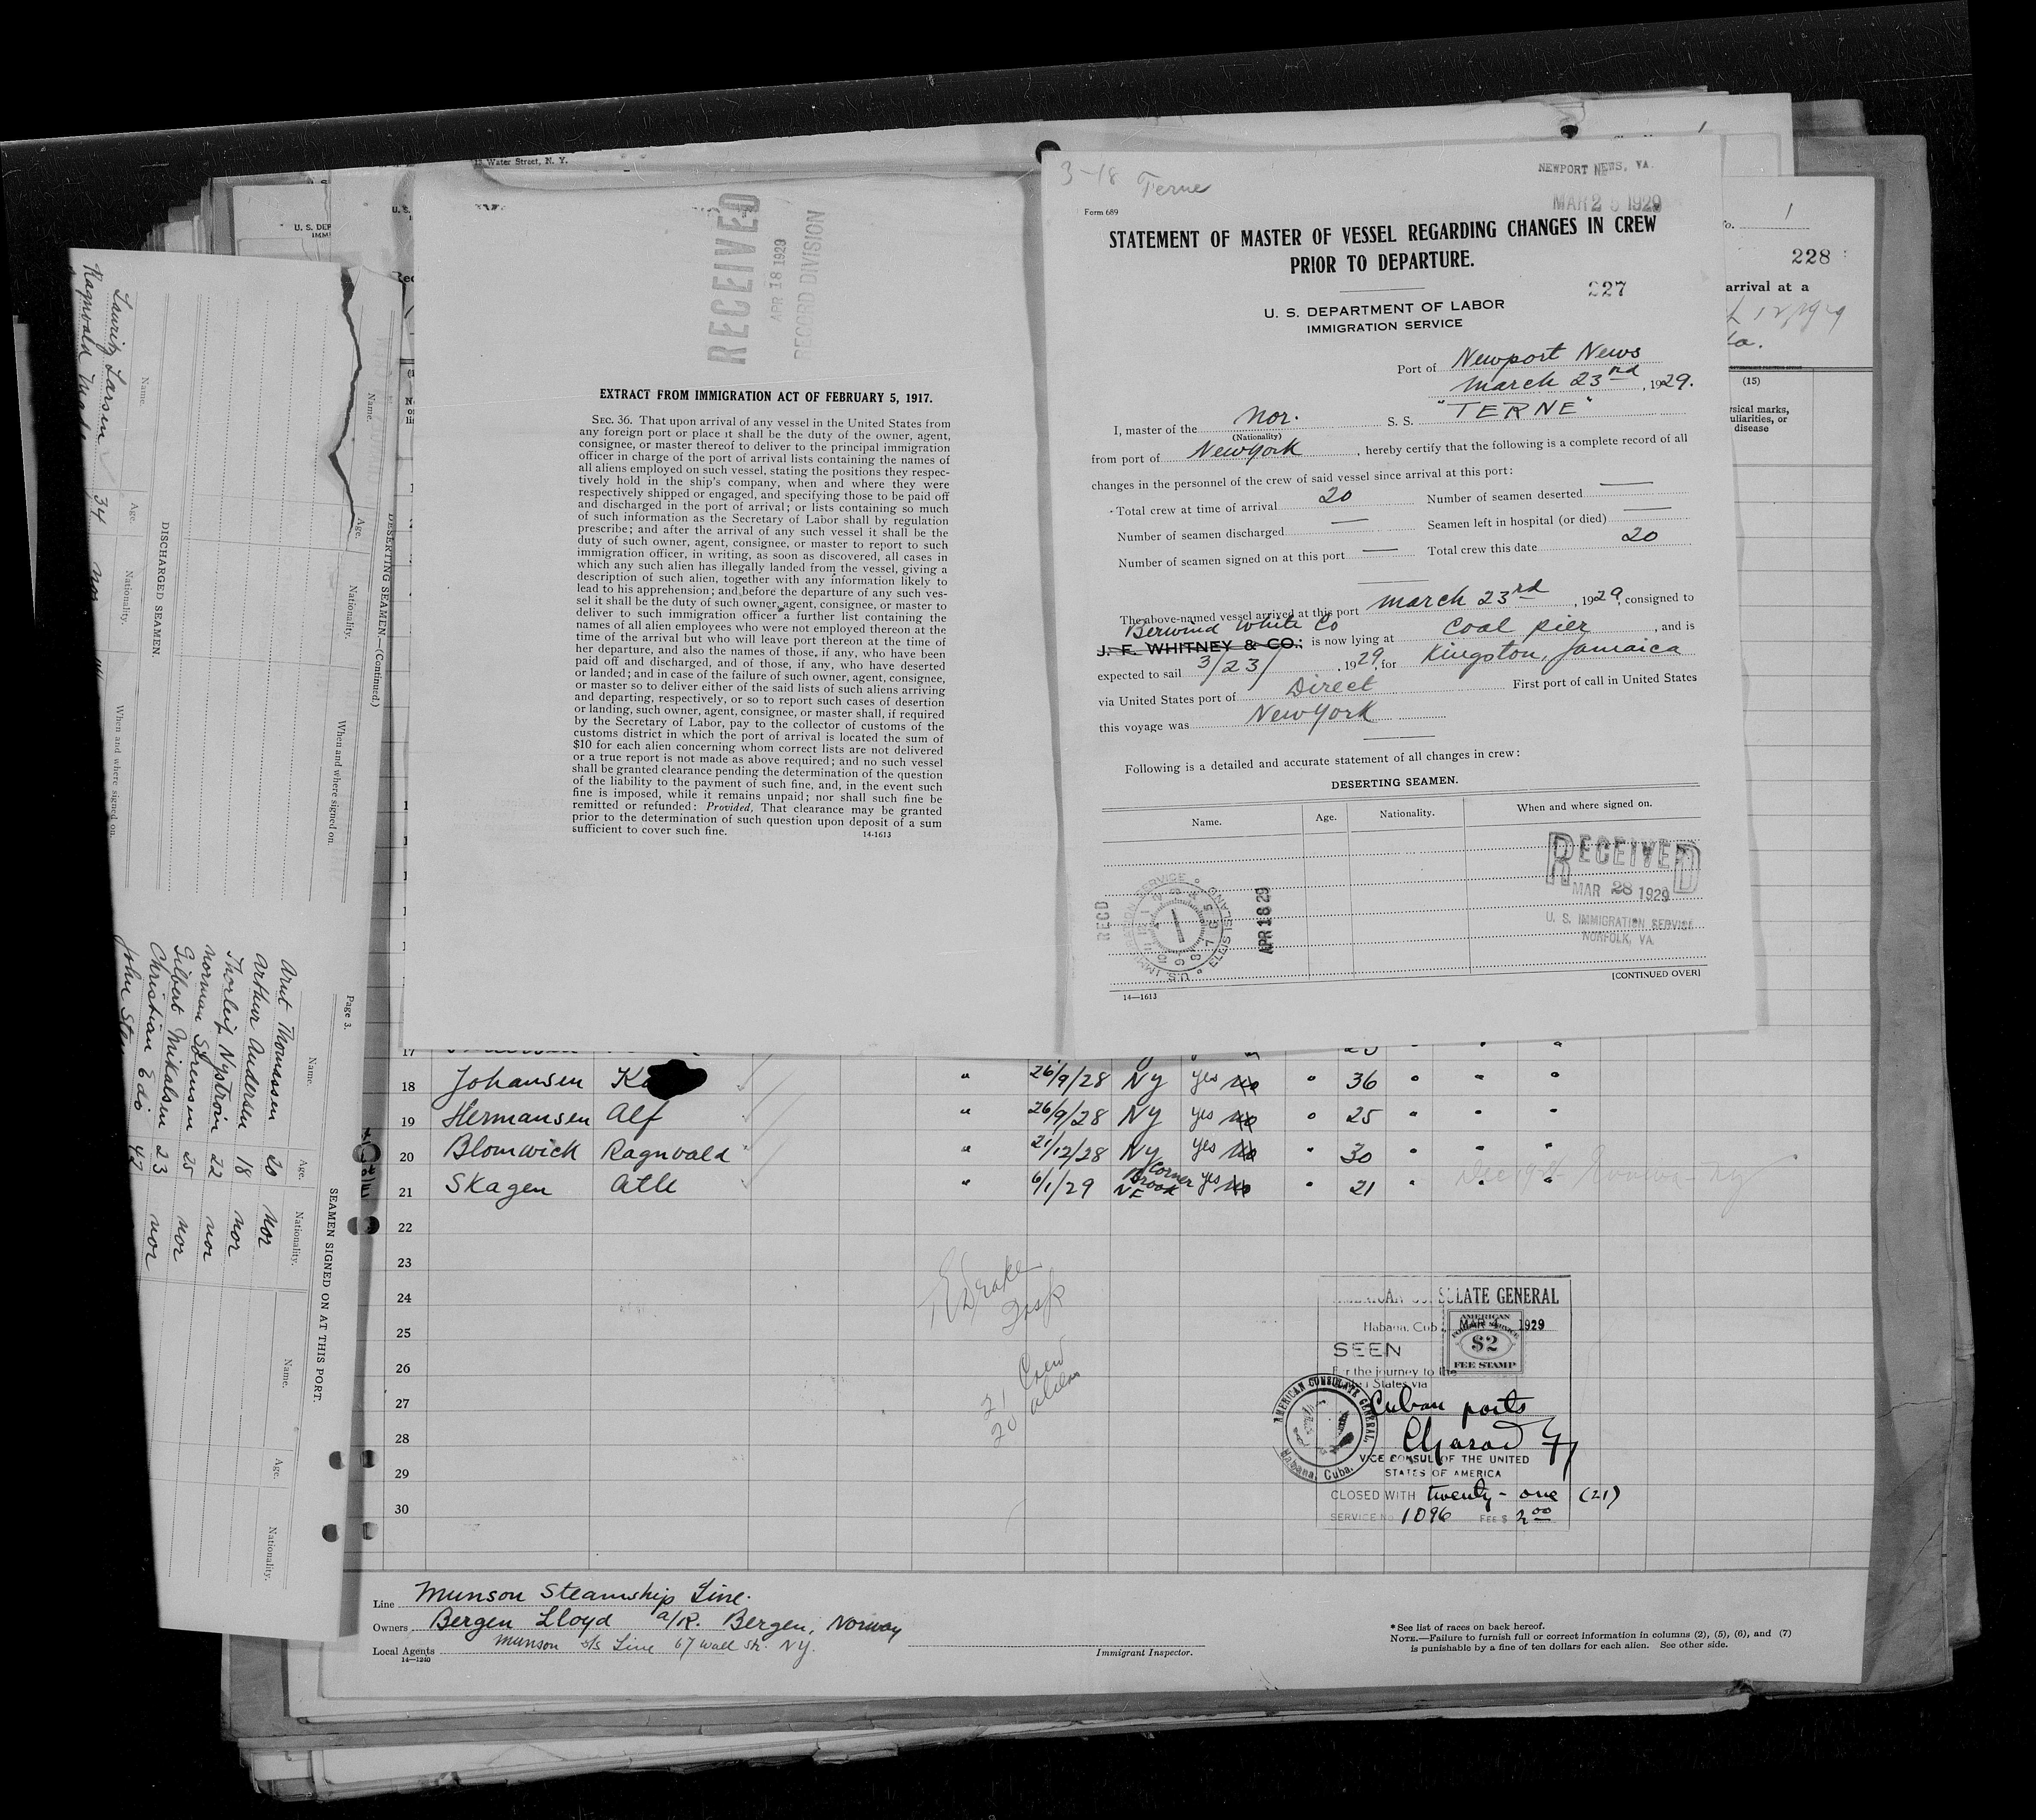 15 Water Street, N. Y.
RECEIVED
APR 18 1929
RECORD DIVISION
EXTRACT FROM IMMIGRATION ACT OF FEBRUARY 5, 1917.
SEC. 36. That upon arrival of any vessel in the United States from
any foreign port or place it shall be the duty of the owner, agent,
consignee, or master thereof to deliver to the principal immigration
officer in charge of the port of arrival lists containing the names of
all aliens employed on such vessel, stating the positions they respec-
tively hold in the ship's company, when and where they were
respectively shipped or engaged, and specifying those to be paid off
and discharged in the port of arrival; or lists containing so much
of such information as the Secretary of Labor shall by regulation
prescribe; and after the arrival of any such vessel it shall be the
duty of such owner, agent, consignee, or master to report to such
immigration officer, in writing, as soon as discovered, all cases in
which any such alien has illegally landed from the vessel, giving a
description of such alien, together with any information likely to
lead to his apprehension; and before the departure of any such ves-
sel it shall be the duty of such owner, agent, consignee, or master to
deliver to such immigration officer a further list containing the
names of all alien employees who were not employed thereon at the
time of the arrival but who will leave port thereon at the time of
her departure, and also the names of those, if any, who have been
paid off and discharged, and of those, if any, who have deserted
or landed; and in case of the failure of such owner, agent, consignee,
or master so to deliver either of the said lists of such aliens arriving
and departing, respectively, or so to report such cases of desertion
or landing, such owner, agent, consignee, or master shall, if required
by the Secretary of Labor, pay to the collector of customs of the
customs district in which the port of arrival is located the sum of
$10 for each alien concerning whom correct lists are not delivered
or a true report is not made as above required; and no such vessel
shall be granted clearance pending the determination of the question
of the liability to the payment of such fine, and, in the event such
fine is imposed, while it remains unpaid; nor shall such fine be
remitted or refunded: Provided, That clearance may be granted
prior to the determination of such question upon deposit of a sum
sufficient to cover such fine.
14-1613
3-18 Terne
NEWPORT NEWS, VA.
MAR 2 1929
Form 689
STATEMENT OF MASTER OF VESSEL REGARDING CHANGES IN CREW
PRIOR TO DEPARTURE.
227
U. S. DEPARTMENT OF LABOR
IMMIGRATION SERVICE
Port of Newport News
March 23rd, 1929.
I, master of the Nor. S. S. "TERNE"
(Nationality)
from port of New York, hereby certify that the following is a complete record of all
changes in the personnel of the crew of said vessel since arrival at this port:
Total crew at time of arrival 20 Number of seamen deserted —
Number of seamen discharged — Seamen left in hospital (or died) —
Number of seamen signed on at this port — Total crew this date 20
The above-named vessel arrived at this port March 23rd, 1929, consigned to
Berwind White Co
J. F. WHITNEY & CO.; is now lying at Coal pier, and is
expected to sail 3/23/, 1929, for Kingston, Jamaica
via United States port of Direct First port of call in United States
this voyage was New York
Following is a detailed and accurate statement of all changes in crew:
DESERTING SEAMEN.
Name. Age. Nationality. When and where signed on.
RECEIVED
MAR 28 1929
U. S. IMMIGRATION SERVICE
NORFOLK, VA.
RECD
U.S. IMMIGRATION SERVICE ELLIS ISLAND
APR 18 29
[CONTINUED OVER]
14—1613
1
228
arrival at a
(15)
DESERTING SEAMEN.—(Continued.)
Name. Age. Nationality. When and where signed on.
DISCHARGED SEAMEN.
Name. Age. Nationality. When and where signed on.
Lauritz Larsen 34 nor
Ragnvald
Page 3.
SEAMEN SIGNED ON AT THIS PORT.
Name. Age. Nationality. Name. Age. Nationality.
Arnt Thomassen 20 nor
Arthur Andersen 18 nor
Thorleif Nystrom 22 nor
Norman Sörensen 25 nor
Gilbert Mikalsen 23 nor
Christian Edo 42
John
17
18 Johansen K " 26/9/28 NY yes no " 36 " " "
19 Hermansen Alf " 26/9/28 NY yes no " 25 " " "
20 Blomwick Ragnvald " 21/12/28 NY yes no " 30 " " "
21 Skagen Atle " 6/1/29 Corner Brook NF yes no " 21 " " "
22
23
24
25
26
27
28
29
30
21 Crew
20 aliens
AMERICAN CONSULATE GENERAL
Habana, Cuba, MAR 1929
SEEN
For the journey to the
United States via
Cuban ports
AMERICAN FOREIGN SERVICE
$2
FEE STAMP
AMERICAN CONSULATE GENERAL, Habana, Cuba.
VICE CONSUL OF THE UNITED
STATES OF AMERICA
CLOSED WITH twenty-one (21)
SERVICE No 1096 FEE $ 2.00
Line Munson Steamship Line.
Owners Bergen Lloyd a/R. Bergen, Norway
Local Agents Munson s/s Line 67 Wall Str. NY.
14—1240
Immigrant Inspector.
*See list of races on back hereof.
NOTE.—Failure to furnish full or correct information in columns (2), (5), (6), and (7)
is punishable by a fine of ten dollars for each alien. See other side.